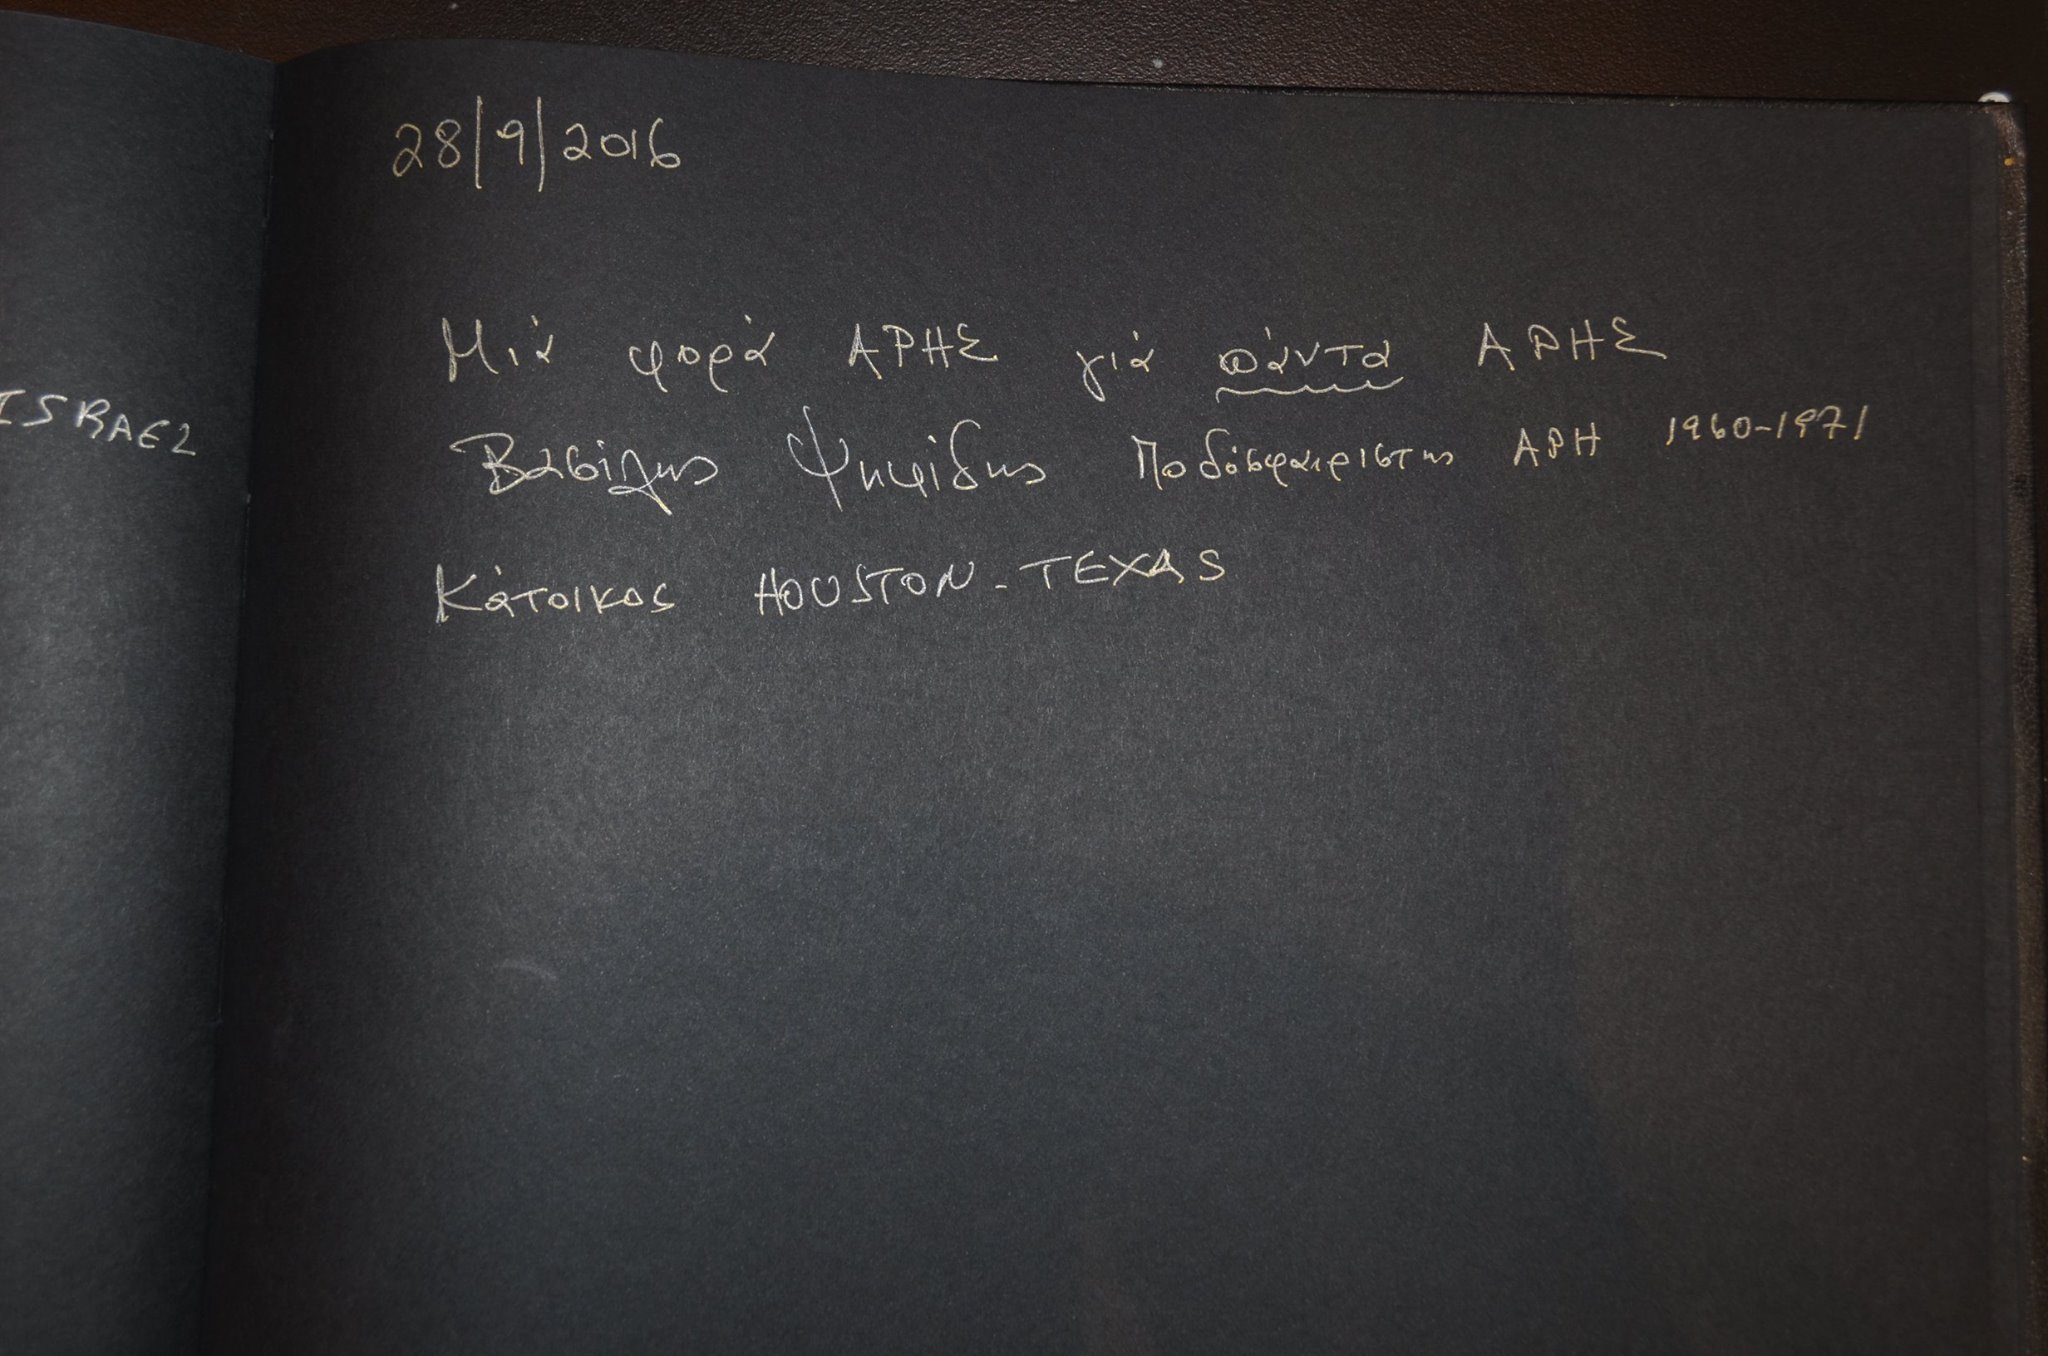 28/9/2016
Μιά φορά ΑΡΗΣ γιά πάντα ΑΡΗΣ
Βασίλης Ψηφίδης Ποδόσφαιριστης ΑΡΗ 1960-1971
Κάτοικος HOUSTON-TEXAS
ISRAEL